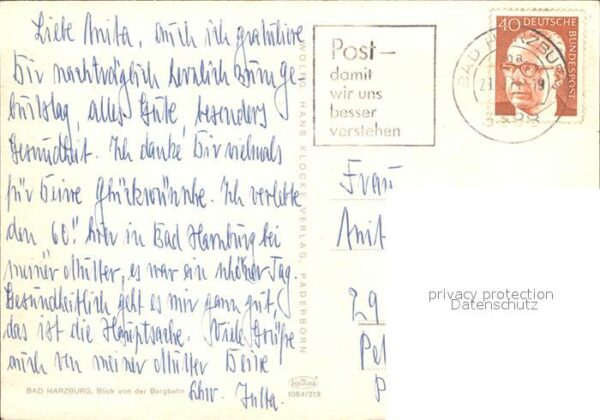 Liebe Anita, auch ich gratuliere
Dir nachträglich herzlich zum Ge-
burtstag, alles Gute, besonders
Gesundheit. Ich danke Dir vielmals
für Deine Glückwünsche. Ich verlebte
den 60. hier in Bad Harzburg bei
meiner Mutter, es war ein schöner Tag.
Gesundheitlich geht es mir ganz gut,
das ist die Hauptsache. Viele Grüße
auch von meiner Mutter Deine
Schw. Jutta.
BAD HARZBURG, Blick von der Bergbahn
WOLFG. HANS KLOCKE VERLAG, PADERBORN
1084/213
Post-
damit
wir uns
besser
verstehen
BAD HARZBURG
40 DEUTSCHE
BUNDESPOST
Frau
Anit
29
privacy protection
Datenschutz